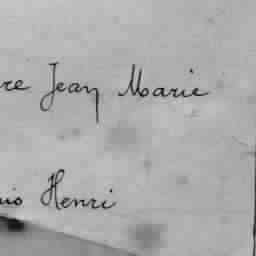 re Jean Marie
uis Henri